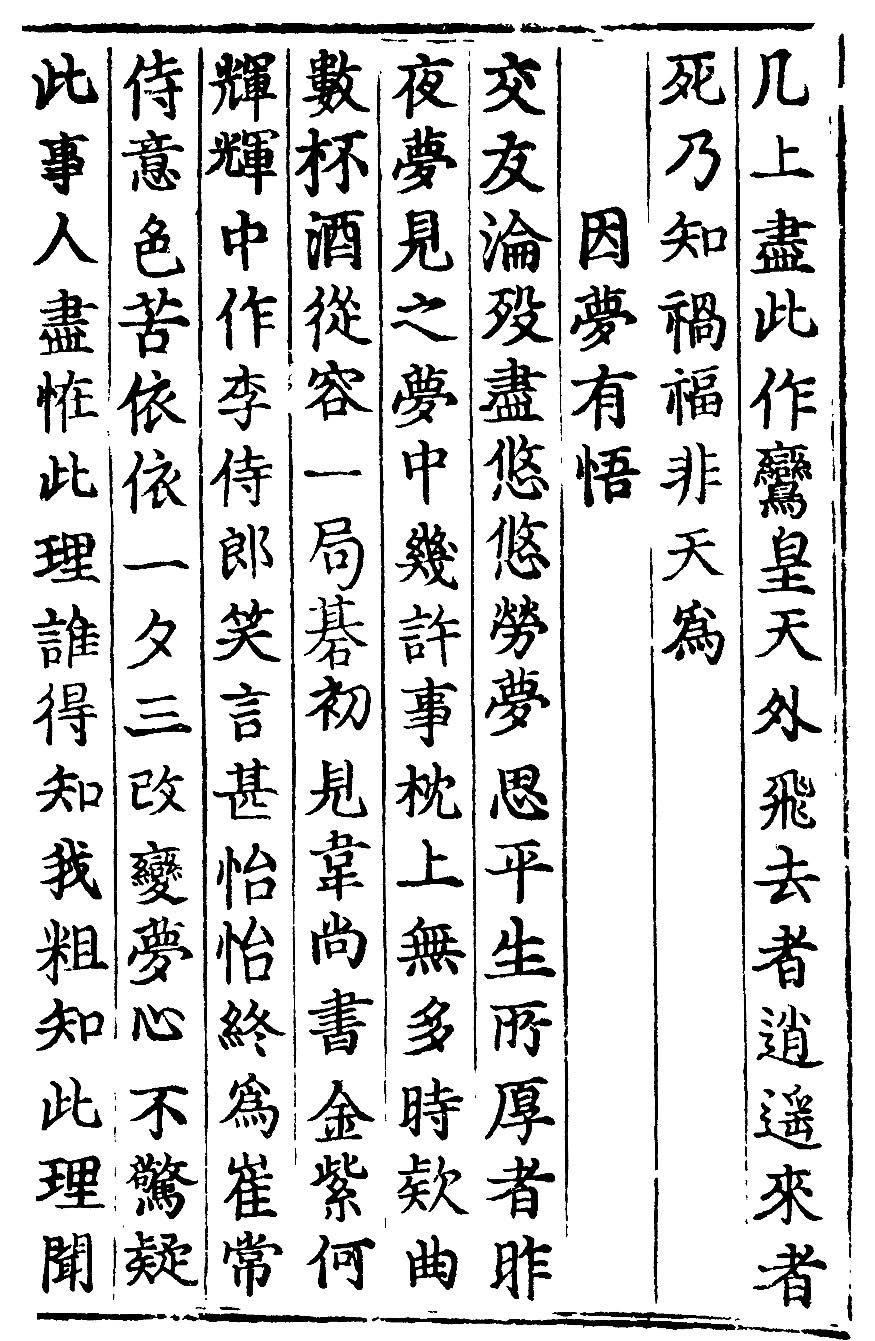 几上盡此作鸞皇天外飛去者逍遥來者
死乃知禍福非天爲
因夢有悟
交友淪殁盡悠悠勞夢思平生所厚者昨
夜夢見之夢中幾許事枕上無多時欵曲
數杯酒從容一局棊初見韋尚書金紫何
輝輝中作李侍郎笑言甚怡怡終爲崔常
侍意色苦依依一夕三改變夢心不驚疑
此事人盡恠此理誰得知我粗知此理聞